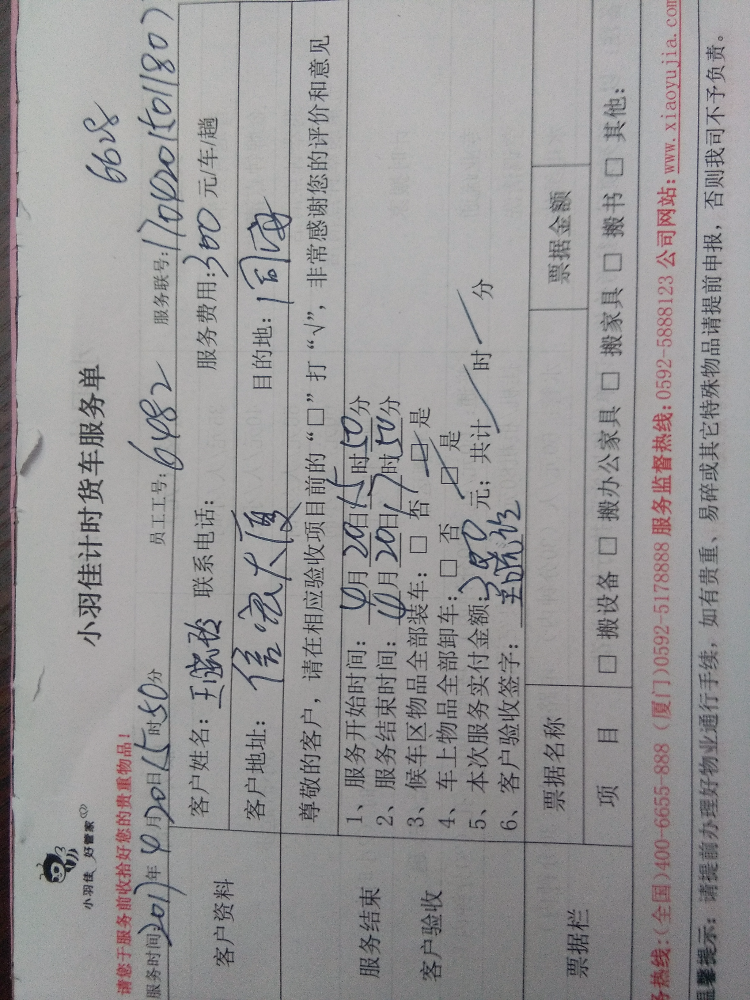 小羽佳 好管家
小羽佳计时货车服务单
6628
请您于服务前收拾好您的贵重物品！
服务时间2017年4月20日15时50分 员工工号：6482 服务联号：1704201501180
客户资料
客户姓名： 联系电话： 服务费用：300元/车/趟
客户地址：信宏大厦 目的地：同海
尊敬的客户，请在相应验收项目前的“□”打“√”，非常感谢您的评价和意见
服务结束
客户验收
1、服务开始时间：4月20日15时50分
2、服务结束时间：4月20日17时50分
3、候车区物品全部装车：□ 否 □ 是
4、车上物品全部卸车：□ 否 □ 是
5、本次服务实付金额：300元；共计/时/分
6、客户验收签字：
票据栏
票据名称 票据金额
项 目 □ 搬设备 □ 搬办公家具 □ 搬家具 □ 搬书 □ 其他：
务热线：(全国)400-6655-888 (厦门)0592-5178888 服务监督热线：0592-5888123 公司网站：www.xiaoyujia.com
温馨提示：请提前办理好物业通行手续，如有贵重、易碎或其它特殊物品请提前申报，否则我司不予负责。